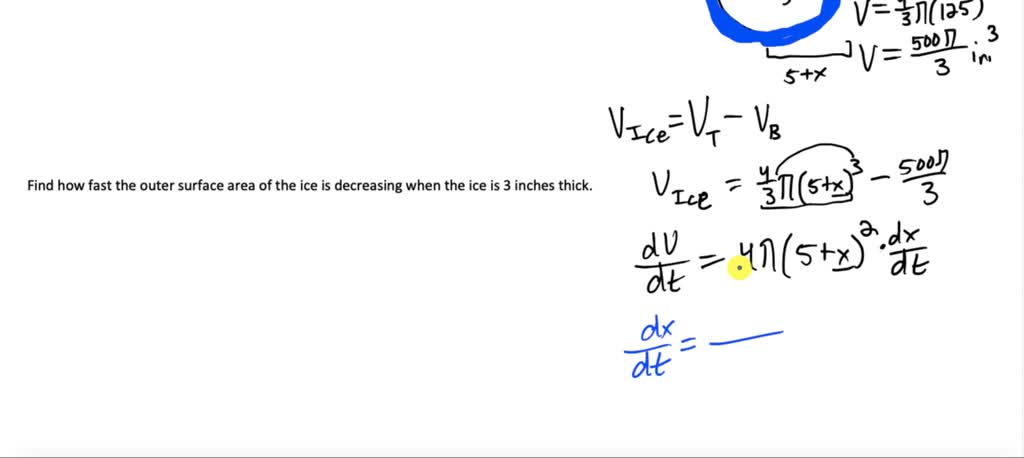 V = 4/3 π(125)
5+x
V = 500π/3 in.³
V_Ice = V_T − V_B
Find how fast the outer surface area of the ice is decreasing when the ice is 3 inches thick.
V_Ice = 4/3 π(5+x)³ − 500π/3
dV/dt = 4π(5+x)² · dx/dt
dx/dt = —